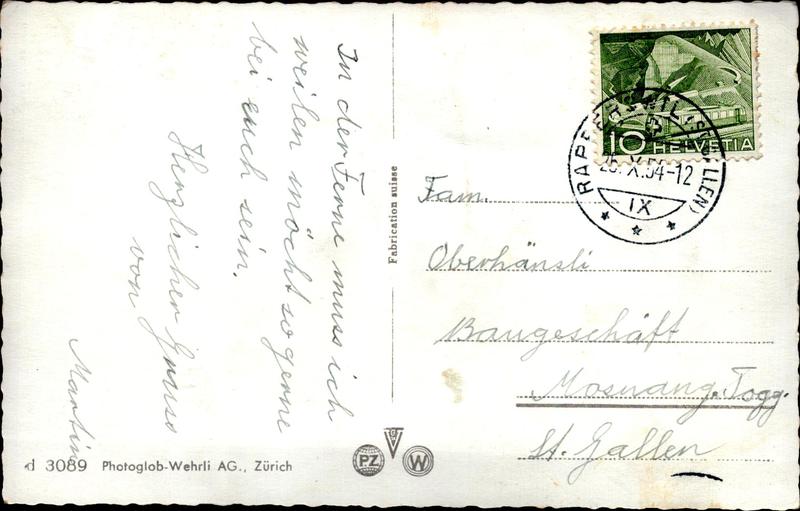 In der Ferne muss ich
weilen möcht so gerne
bei euch sein.
Herzlicher Gruss
von
Martin
Fabrication suisse
10 HELVETIA
RAPPERSWIL (ST. GALLEN)
25. X. 54-12
IX
Fam.
Oberhänsli
Baugeschäft
Mosnang. Togg.
St. Gallen
d 3089 Photoglob-Wehrli AG., Zürich
PZ
W